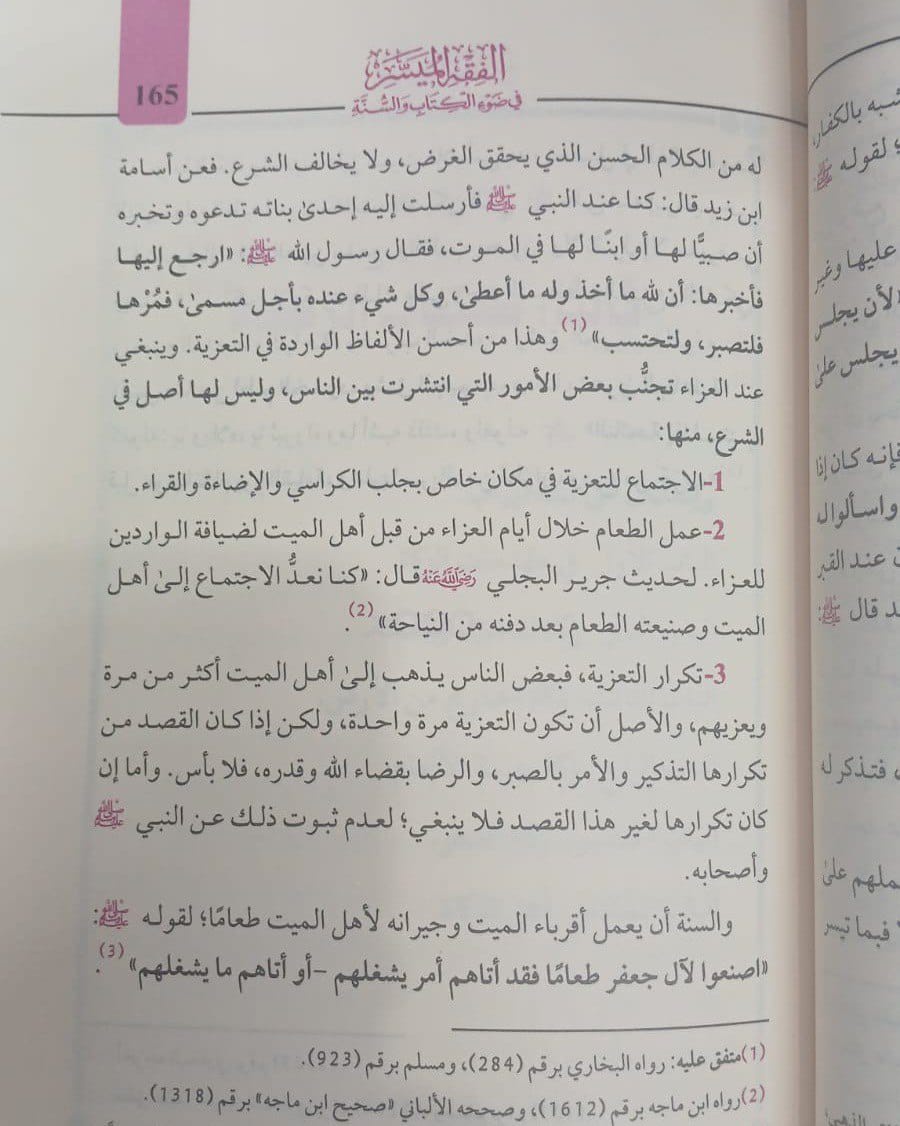 165
الفقه الميسر
في ضوء الكتاب والسنة
له من الكلام الحسن الذي يحقق الغرض، ولا يخالف الشرع. فعن أسامة
ابن زيد قال: كنا عند النبي ﷺ فأرسلت إليه إحدىٰ بناته تدعوه وتخبره
أن صبيًّا لها أو ابنًا لها في الموت، فقال رسول الله ﷺ: «ارجع إليها
فأخبرها: أن لله ما أخذ وله ما أعطىٰ، وكل شيء عنده بأجل مسمىٰ، فمُرْها
فلتصبر، ولتحتسب»(1) وهذا من أحسن الألفاظ الواردة في التعزية. وينبغي
عند العزاء تجنُّب بعض الأمور التي انتشرت بين الناس، وليس لها أصل في
الشرع، منها:
1-الاجتماع للتعزية في مكان خاص بجلب الكراسي والإضاءة والقراء.
2-عمل الطعام خلال أيام العزاء من قبل أهل الميت لضيافة الواردين
للعزاء. لحديث جرير البجلي رَضِيَ اللَّهُ عَنْهُ قال: «كنا نعدُّ الاجتماع إلىٰ أهل
الميت وصنيعته الطعام بعد دفنه من النياحة»(2).
3-تكرار التعزية، فبعض الناس يذهب إلىٰ أهل الميت أكثر من مرة
ويعزيهم، والأصل أن تكون التعزية مرة واحدة، ولكن إذا كان القصد من
تكرارها التذكير والأمر بالصبر، والرضا بقضاء الله وقدره، فلا بأس. وأما إن
كان تكرارها لغير هذا القصد فلا ينبغي؛ لعدم ثبوت ذلك عن النبي ﷺ
وأصحابه.
والسنة أن يعمل أقرباء الميت وجيرانه لأهل الميت طعامًا؛ لقوله ﷺ:
«اصنعوا لآل جعفر طعامًا فقد أتاهم أمر يشغلهم -أو أتاهم ما يشغلهم»(3).
(1)متفق عليه: رواه البخاري برقم (284)، ومسلم برقم (923).
(2)رواه ابن ماجه برقم (1612)، وصححه الألباني «صحيح ابن ماجه» برقم (1318).
شبه بالكفار
لقوله ﷺ:
عليها وغير
لأن يجلس
يجلس علىٰ
فإنه كان إذا
واسألوا
عند القبر
قال ﷺ:
فتذكر له
علىٰ
فيما تيسر